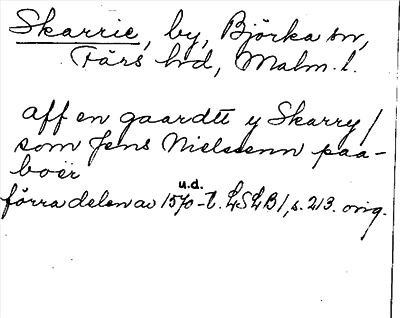 Skarrie, by, Björka sn,
Färs hd, Malm. l.
aff en gaardtt y Skarry /
som Jens Nielssenn paa-
boer
u.d.
förra delen av 1570-t. LSLB 1, s. 213. orig.